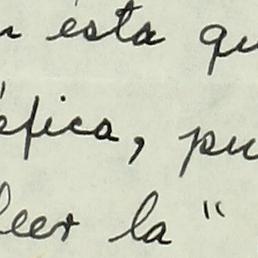 ésta qu
éfica, pu
leer la "